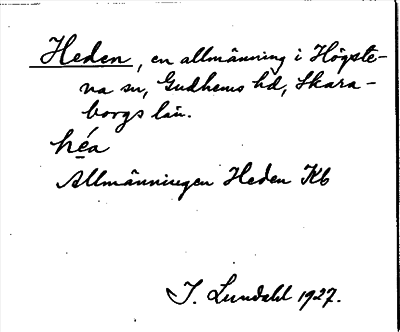 Heden, en allmänning i Högste-
na sn, Gudhems hd, Skara-
borgs län.
héa
Allmänningen Heden Kb
I. Lundahl 1927.